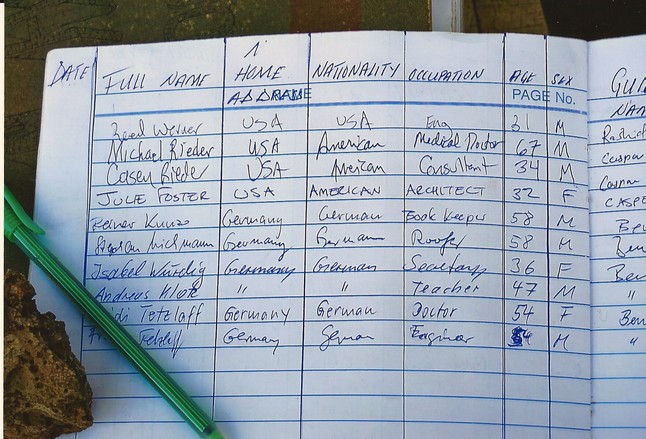 DATE FULL NAME HOME ADDRESS NATIONALITY OCCUPATION AGE SEX
PAGE No.
Werner USA USA Eng 31 M
Michael Rieder USA American Medical Doctor 67 M
Casey Rieder USA American Consultant 34 M
JULIE FOSTER USA AMERICAN ARCHITECT 32 F
Reiner Kunze Germany German Book Keeper 58 M
Germany German Roofer 58 M
Isabel Würdig Germany German Secretary 36 F
Andreas Klotz " " Teacher 47 M
Heidi Tetzlaff Germany German Doctor 54 F
Germany German Engineer M
NAME
Rashid
Caspar
Caspar
CASPE
Ben
Ben
Ben
"
Ben
"